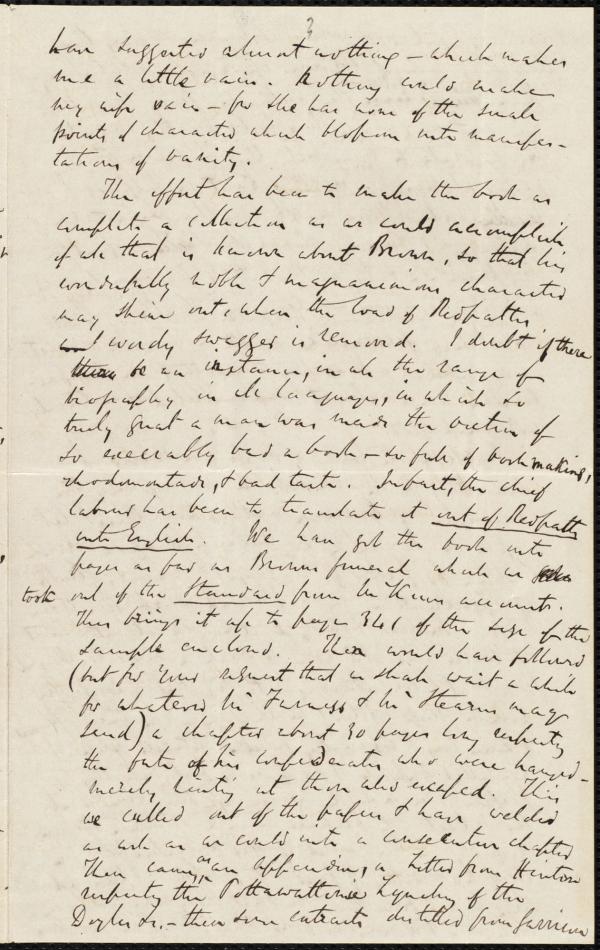 3
have suggested almost nothing – which makes
me a little vain. Nothing could make
my wife vain – for she has none of the small
points of character which blossom into manifes-
tations of vanity.
The effort has been to make the book as
complete a collection as we could accomplish
of all that is known about Brown, so that his
wonderfully noble & magnanimous character
may shine out, when the load of Redpaths
wordy swagger is removed. I doubt if there
be an instance, in all the range of
biography in all languages, in which so
truly great a man was made the victim of
so execrably bad a book – so full of bookmaking,
rhodomontade, & bad taste. In fact, the chief
labour has been to translate it out of Redpath
into English. We have got the book into
pages as far as Browns funeral which we
took out of the Standard from Mr Kims accounts.
This brings it up to page 341 of the size of the
sample enclosed. Then would have followed
(but for your request that we shall wait a while
for whatever Mr Furness & Mr Stearns may
send) a chapter about 30 pages long respecting
the fate of his confederates who were hanged –
merely hinting at those who escaped. This
we culled out of the papers & have welded
as well as we could into a consecutive chapter
Then came, as an appendix, a letter from Hinton
respecting the Pottawattomie Lynching of the
Doyles &c. – then some extracts distilled from Garrison